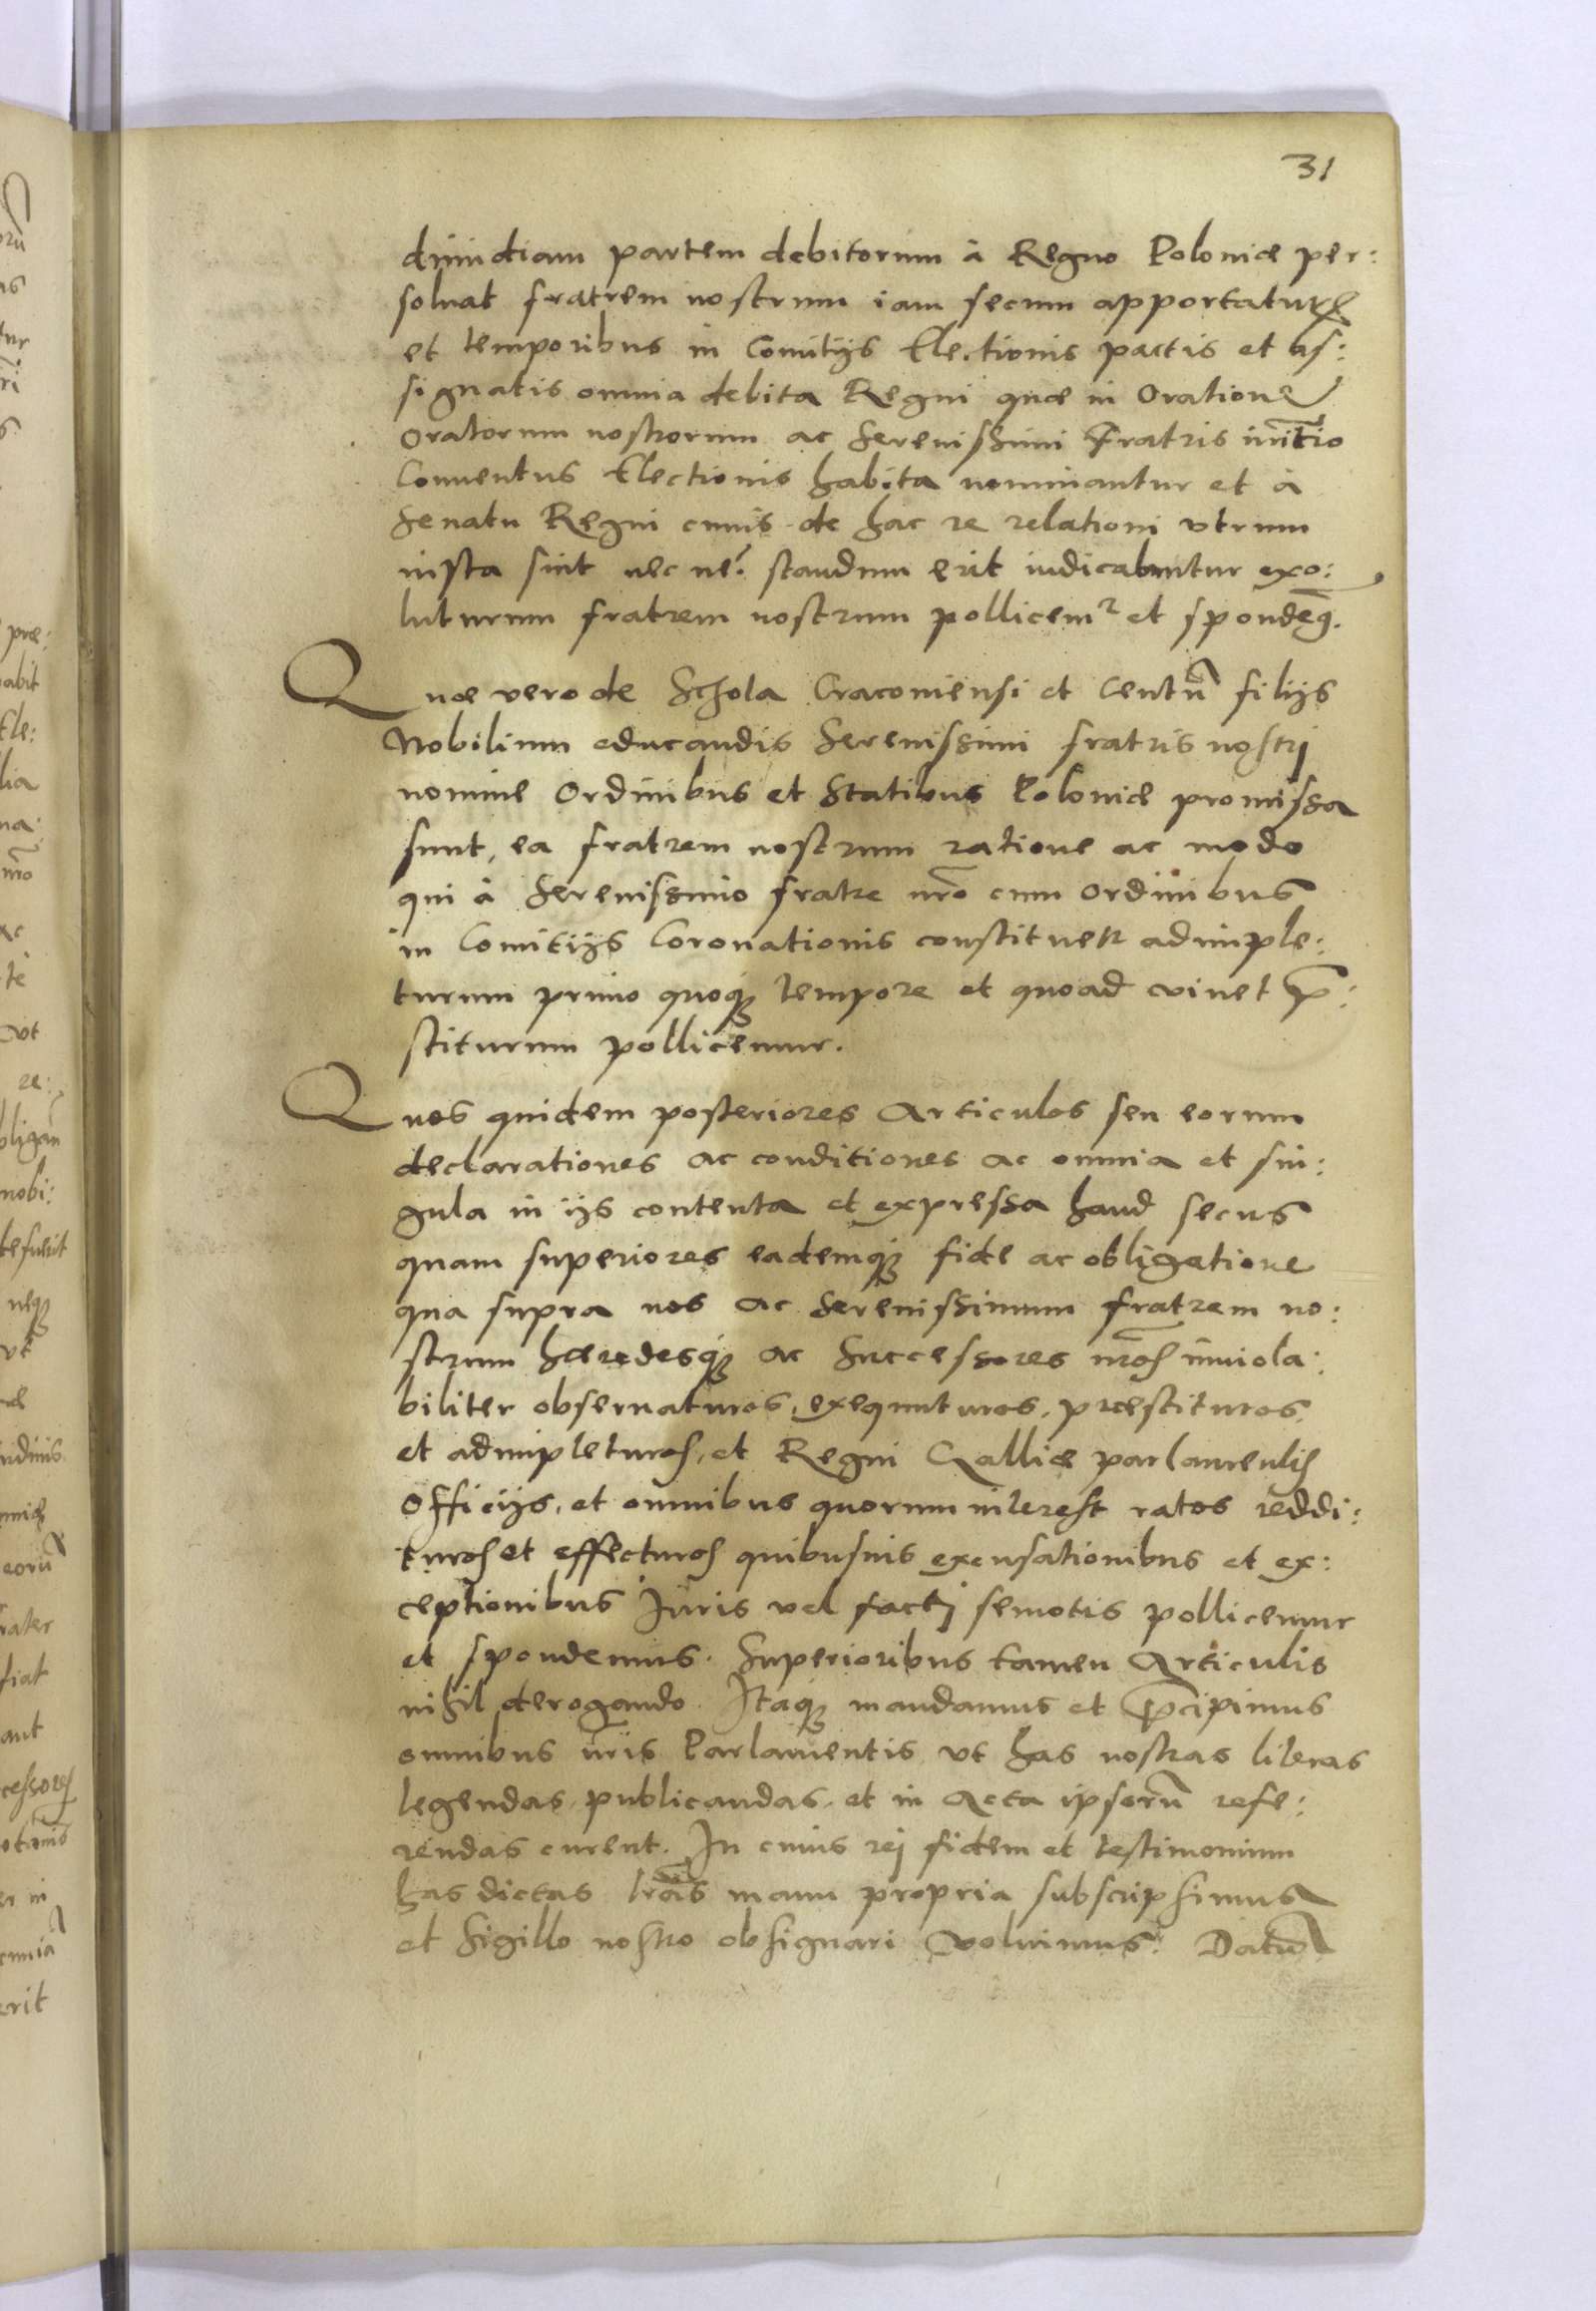 31
dimidiam partem debitorum à Regno Poloniæ per:
soluat fratrem nostrum iam secum apportaturũ
et temporibus in Comitijs Electionis pactis et as:
signatis omnia debita Regni quæ in Oratione
Oratorum nostrorum ac Serenissimi Fratris initio
Conuentus Electionis habita nominantur et à
Senatu Regni cuius de hac re relationi vtrum
iusta sint nec ne? standum erit iudicabuntur exo:
luturum fratrem nostrum pollicemr et spondeq.
Quæ vero de Schola Cracouiensi et Centũ filijs
Nobilium educandis Serenissimi fratris nostrj
nomine Ordinibus et Statibus Poloniæ promissa
sunt, ea fratrem nostrum ratione ac modo
qui à Serenissimo fratre nr̃o cum Ordinibus
in Comitijs Coronationis constituetr adimple:
turum primo quoqꝫ tempore et quoad viuet p̃:
stiturum pollicemur.
Quos quidem posteriores Articulos seu eorum
declarationes ac conditiones ac omnia et sin:
gula in ijs contenta et expressa haud secus
quam superiores eademqꝫ fide ac obligatione
qua supra nos ac Serenissimum fratrem no:
strum hæredesqꝫ ac Successores nr̃os inuiola:
biliter obseruaturos, exequuturos, præstituros
et adimpleturos, et Regni Galliæ parlamentis
Officijs, et omnibus quorum interest ratos reddi:
turos et effecturos quibusuis excusationibus et ex:
ceptionibus Juris vel factj semotis pollicemur
et spondemus. Superioribus tamen Articulis
nihil derogando. Itaqꝫ mandamus et p̃cipimus
omnibus nr̃is Parlamentis vt has nostras literas
legendas, publicandas, et in Acta ipsorũ refe:
rendas curent. In cuius rej fidem et testimonium
has dictas lr̃as manu propria subscripsimus
et Sigillo nostro obsignari voluimus: Datũ